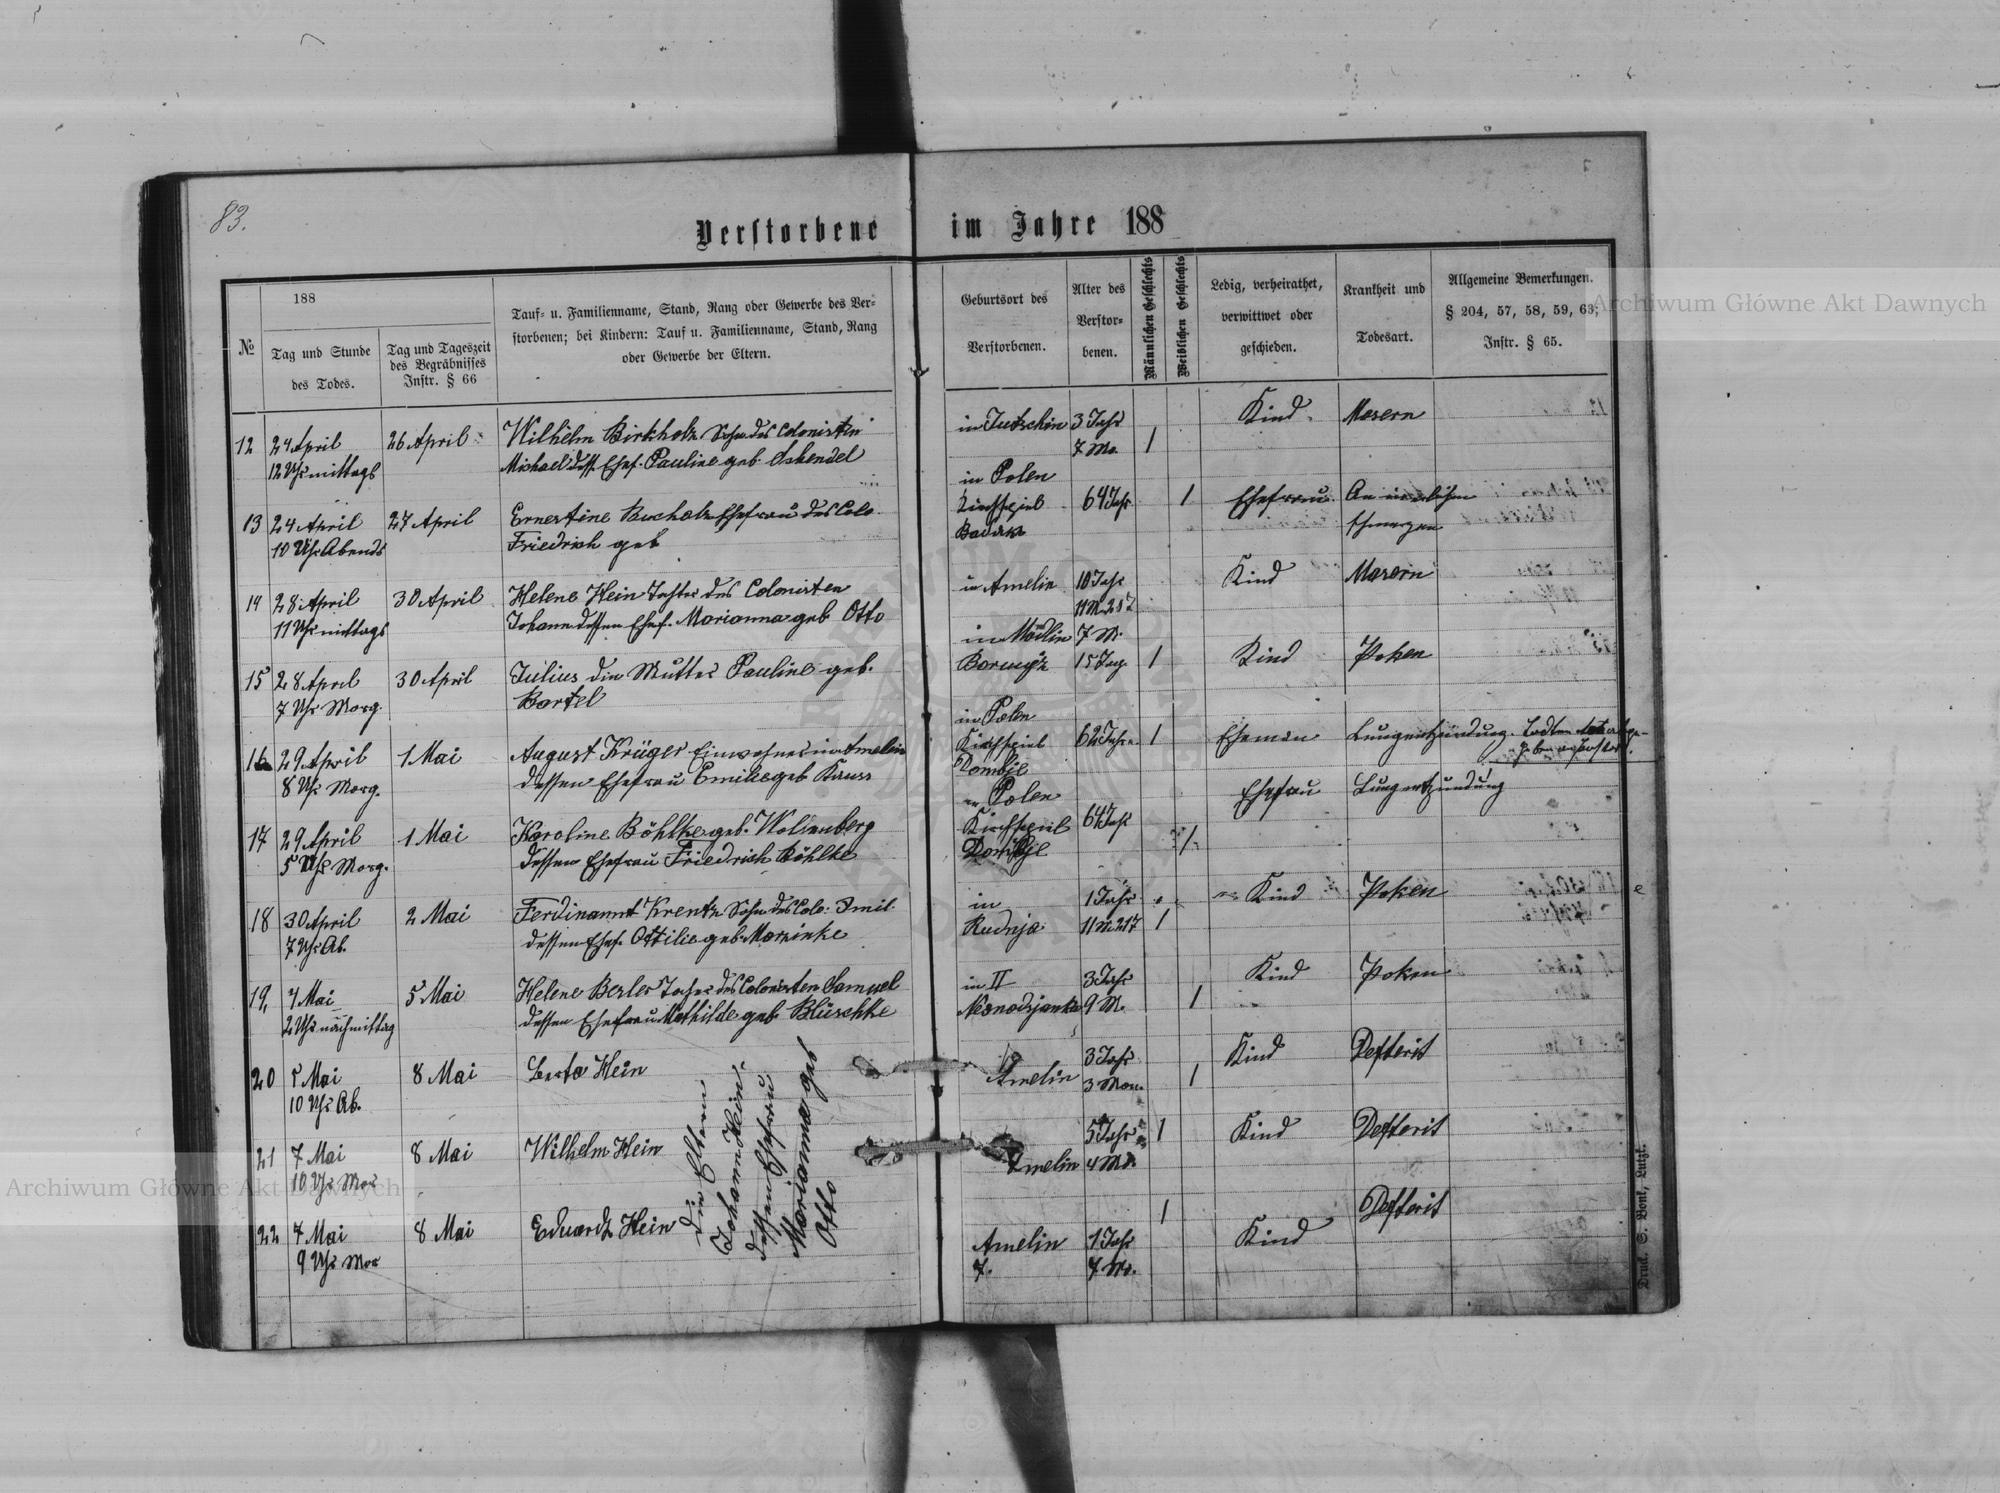 83.
Verstorbene im Jahre 188
№
188
Tag und Stunde
des Todes.
Tag und Tageszeit
des Begräbnisses
Instr. § 66
Tauf- u. Familienname, Stand, Rang oder Gewerbe des Ver-
storbenen; bei Kindern: Tauf u. Familienname, Stand, Rang
oder Gewerbe der Eltern.
Geburtsort des
Verstorbenen.
Alter des
Verstor-
benen.
Männlichen Geschlechts
Weiblichen Geschlechts
Ledig, verheirathet,
verwittwet oder
geschieden.
Krankheit und
Todesart.
Allgemeine Bemerkungen.
§ 204, 57, 58, 59, 63;
Instr. § 65.
12 24 April 26 April Wilhelm Birkholz Sohn des Colonisten in 3 Jahr Kind Masern
12 Uhr mittags Michael dess. Ehef. Pauline geb. 7 Mo. 1
in Polen
13 24 April 27 April Ernestine Bucholz Ehefrau des Colo Kirchspiel 64 Jahr 1 Ehefrau An
10 Uhr Abends Friedrich geb
14 28 April 30 April Helene Hein Tochter des Colonisten in Amelin 10 Jahr Kind Masern
11 Uhr mittags Johann dessen Ehef. Marianna geb Otto 11 M
in 7 M.
15 28 April 30 April Julius die Mutter Pauline geb. 15 Tag. 1 Kind Poken
7 Uhr Morg. Bartel
in Polen
16 29 April 1 Mai August Krüger Einwohner in Amelin Kirchspiel 62 Jahre. 1 Eheman Lungentzündung.
8 Uhr Morg. dessen Ehefrau Emilie geb Krauss Dombje
in Polen
17 29 April 1 Mai Karoline Böhlke geb. Wolsenberg Kirchspiel 64 Jahr 1 Ehefrau Lungentzündung
5 Uhr Morg. dessen Ehefrau Friedrich Böhlke Dombje
18 30 April 2 Mai Ferdinannt Krentz Sohn des Colo: Emil in 1 Jahr Kind Poken
7 Uhr Ab. dessen Ehef. Ottilie geb. Marzinke Rudnja 1
19, 4 Mai 5 Mai Helene Besler Tochter des Colonisten Samuel in II 3 Jahr Kind Poken
2 Uhr nachmittag dessen Ehefrau Mathilde geb. Blüschke 9 M. 1
20 5 Mai 8 Mai Berta Hein Amelin 3 Jahr 1 Kind Defterit
10 Uhr Ab. 3 Mon.
21 7 Mai 8 Mai Wilhelm Hein Amelin 5 Jahr 1 Kind Defterit
10 Uhr Mor 4 Mo.
22 7 Mai 8 Mai Eduardt Hein Amelin 1 Jahr 1 Kind Defterit
9 Uhr Mor 7. 7 Mo.
die Eltern
Johann Hein.
dessen Ehefrau
Marianna geb
Otto
Druck. S. Bonk, Lutzk.
Archiwum Główne Akt Dawnych
Archiwum Główne Akt Dawnych